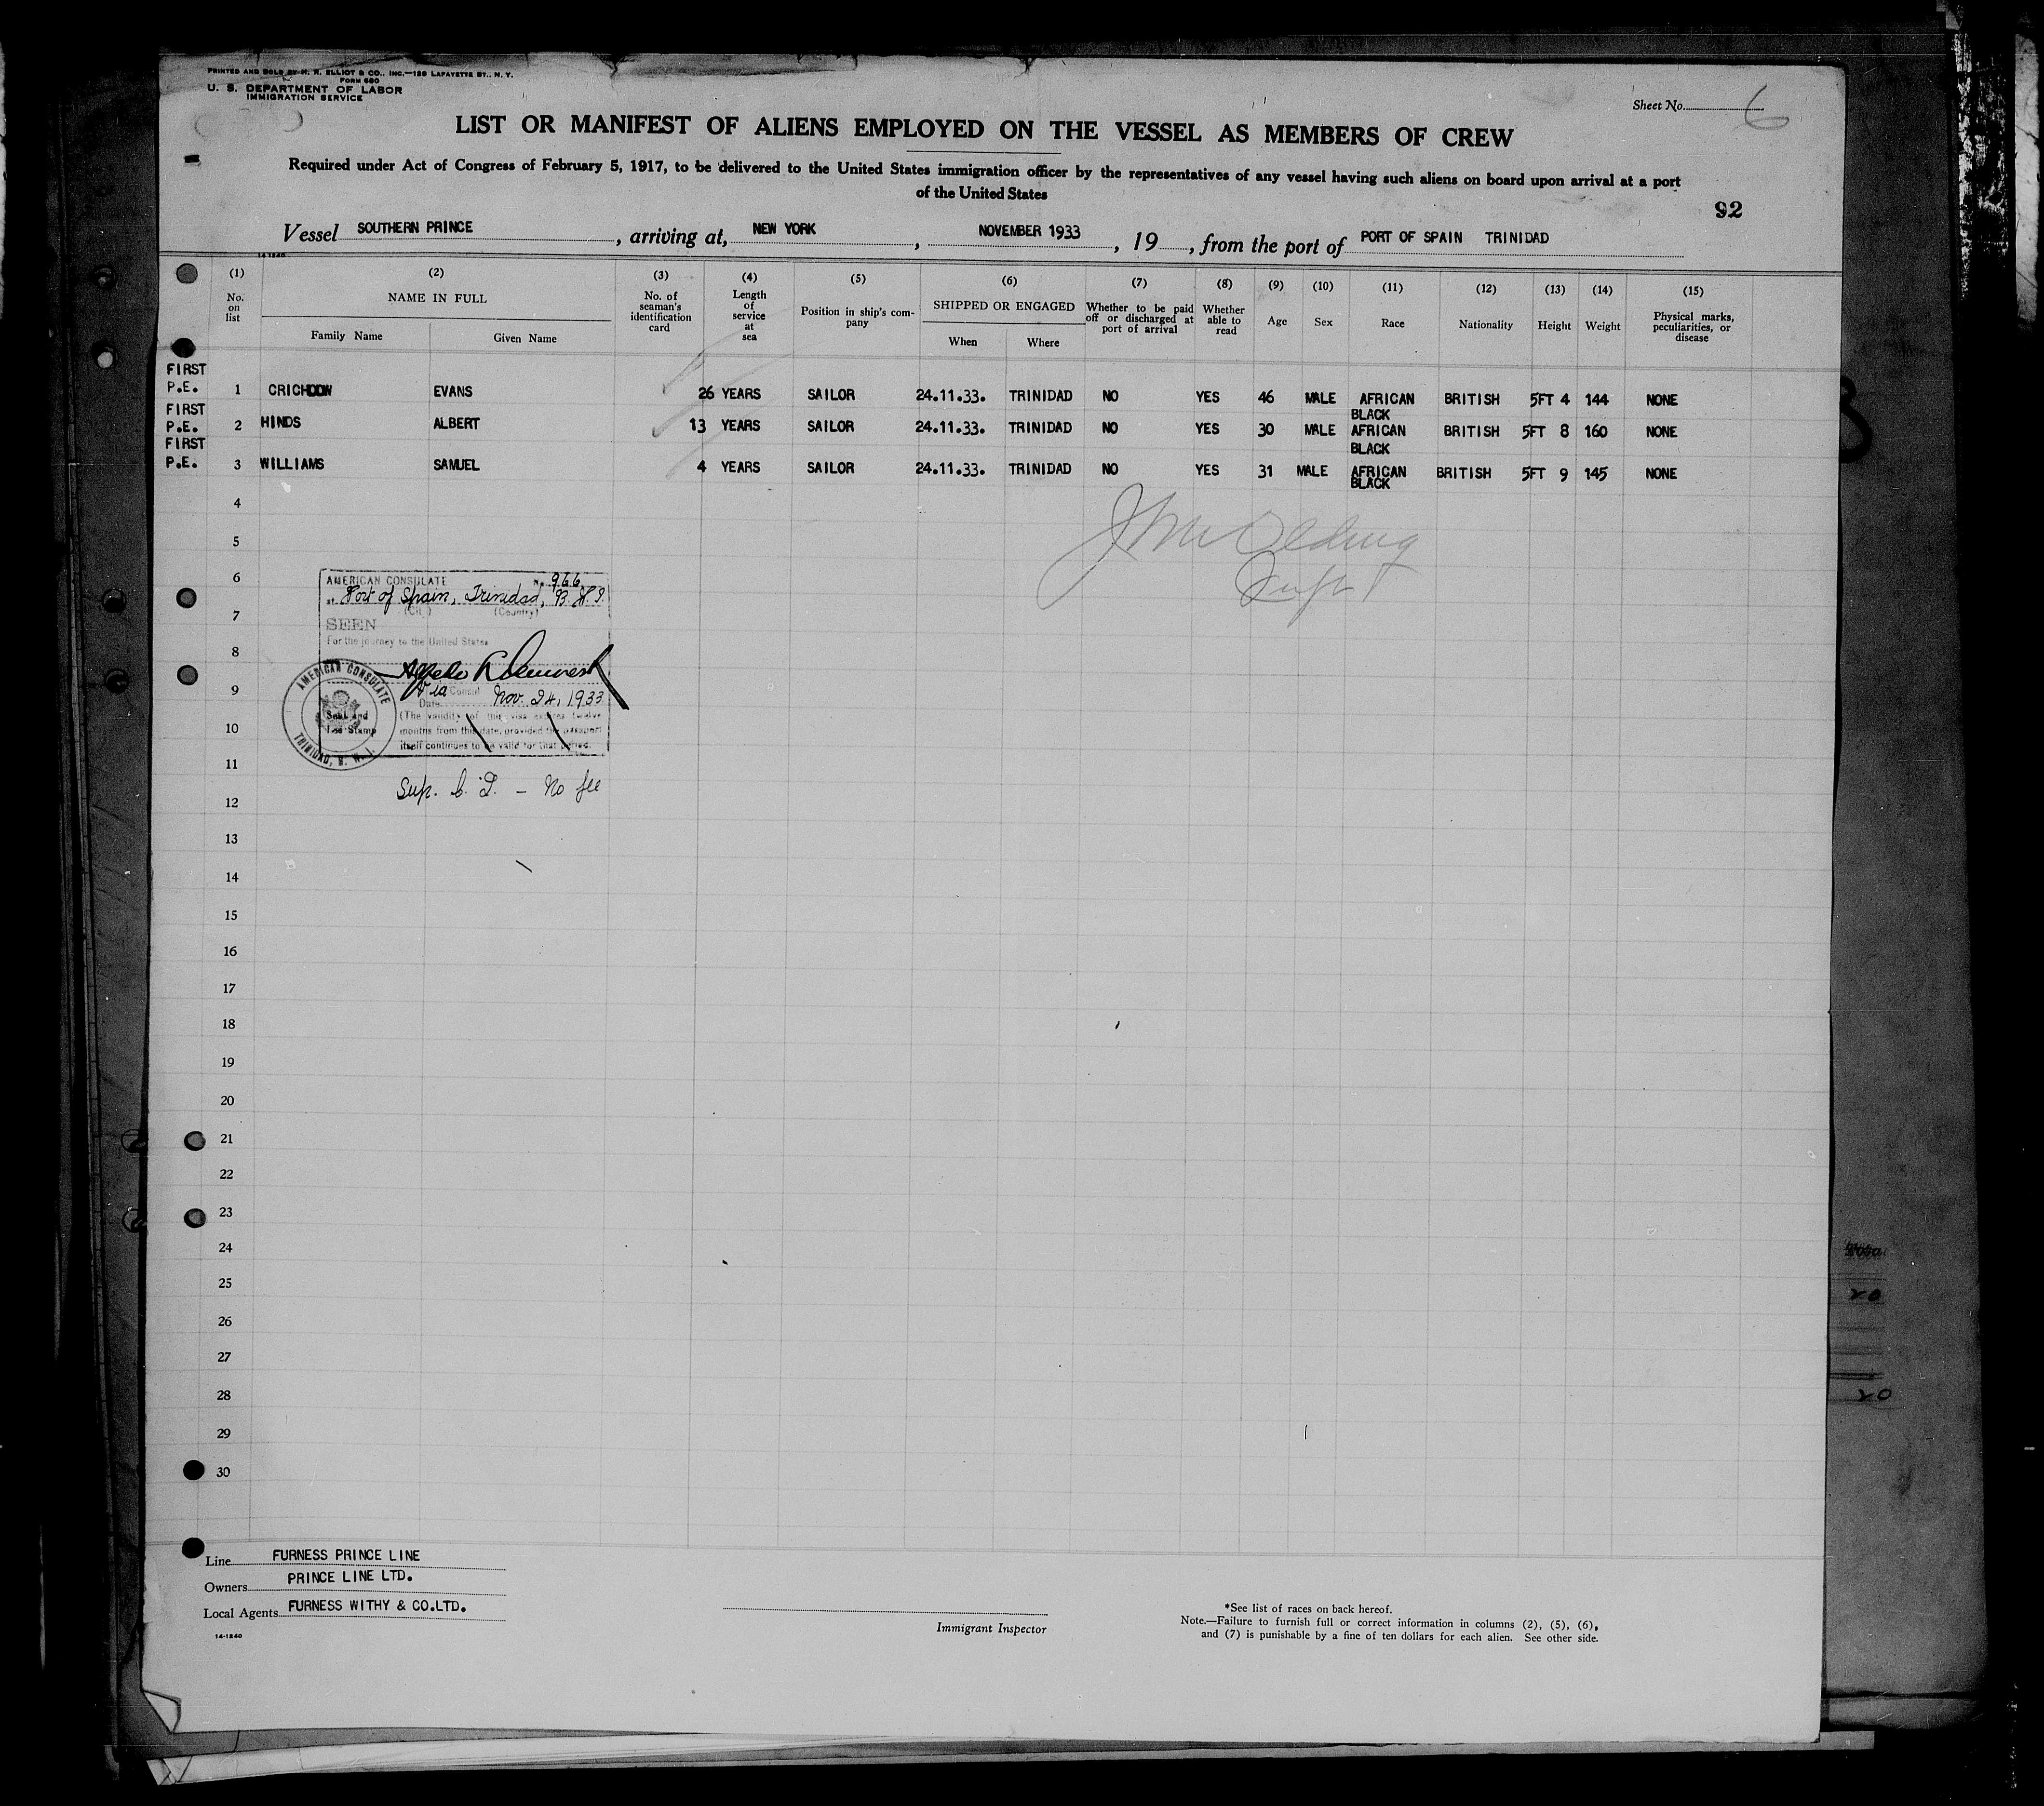 PRINTED AND SOLD BY H. R. ELLIOT & CO., INC.—129 LAFAYETTE ST., N. Y.
FORM 680
U. S. DEPARTMENT OF LABOR
IMMIGRATION SERVICE
Sheet No. 6
LIST OR MANIFEST OF ALIENS EMPLOYED ON THE VESSEL AS MEMBERS OF CREW
Required under Act of Congress of February 5, 1917, to be delivered to the United States immigration officer by the representatives of any vessel having such aliens on board upon arrival at a port
of the United States
92
Vessel SOUTHERN PRINCE, arriving at, NEW YORK, NOVEMBER 1933, 19, from the port of PORT OF SPAIN TRINIDAD
14-1240
(1) (2) (3) (4) (5) (6) (7) (8) (9) (10) (11) (12) (13) (14) (15)
No. on list NAME IN FULL Family Name Given Name No. of seaman's identification card Length of service at sea Position in ship's company SHIPPED OR ENGAGED When Where Whether to be paid off or discharged at port of arrival Whether able to read Age Sex Race Nationality Height Weight Physical marks, peculiarities, or disease
FIRST
P.E. 1 EVANS 26 YEARS SAILOR 24.11.33. TRINIDAD NO YES 46 MALE AFRICAN BRITISH 5FT 4 144 NONE
BLACK
FIRST
P.E. 2 HINDS ALBERT 13 YEARS SAILOR 24.11.33. TRINIDAD NO YES 30 MALE AFRICAN BRITISH 5FT 8 160 NONE
BLACK
FIRST
P.E. 3 WILLIAMS SAMUEL 4 YEARS SAILOR 24.11.33. TRINIDAD NO YES 31 MALE AFRICAN BRITISH 5FT 9 145 NONE
BLACK
4
5
6
7
8
9
10
11
12
13
14
15
16
17
18
19
20
21
22
23
24
25
26
27
28
29
30
AMERICAN CONSULATE No. 966
at Port of Spain, Trinidad, B.W.I.
(City) (Country)
SEEN
For the journey to the United States
Consul
Date Nov. 24, 1933
(The validity of this visa expires twelve
months from this date, provided the passport
itself continues to be valid for that period.
AMERICAN CONSULATE
TRINIDAD, B. W. I.
Seal and
Fee Stamp
No fee
Line FURNESS PRINCE LINE
Owners PRINCE LINE LTD.
Local Agents FURNESS WITHY & CO.LTD.
14-1240
Immigrant Inspector
*See list of races on back hereof.
Note.—Failure to furnish full or correct information in columns (2), (5), (6),
and (7) is punishable by a fine of ten dollars for each alien. See other side.